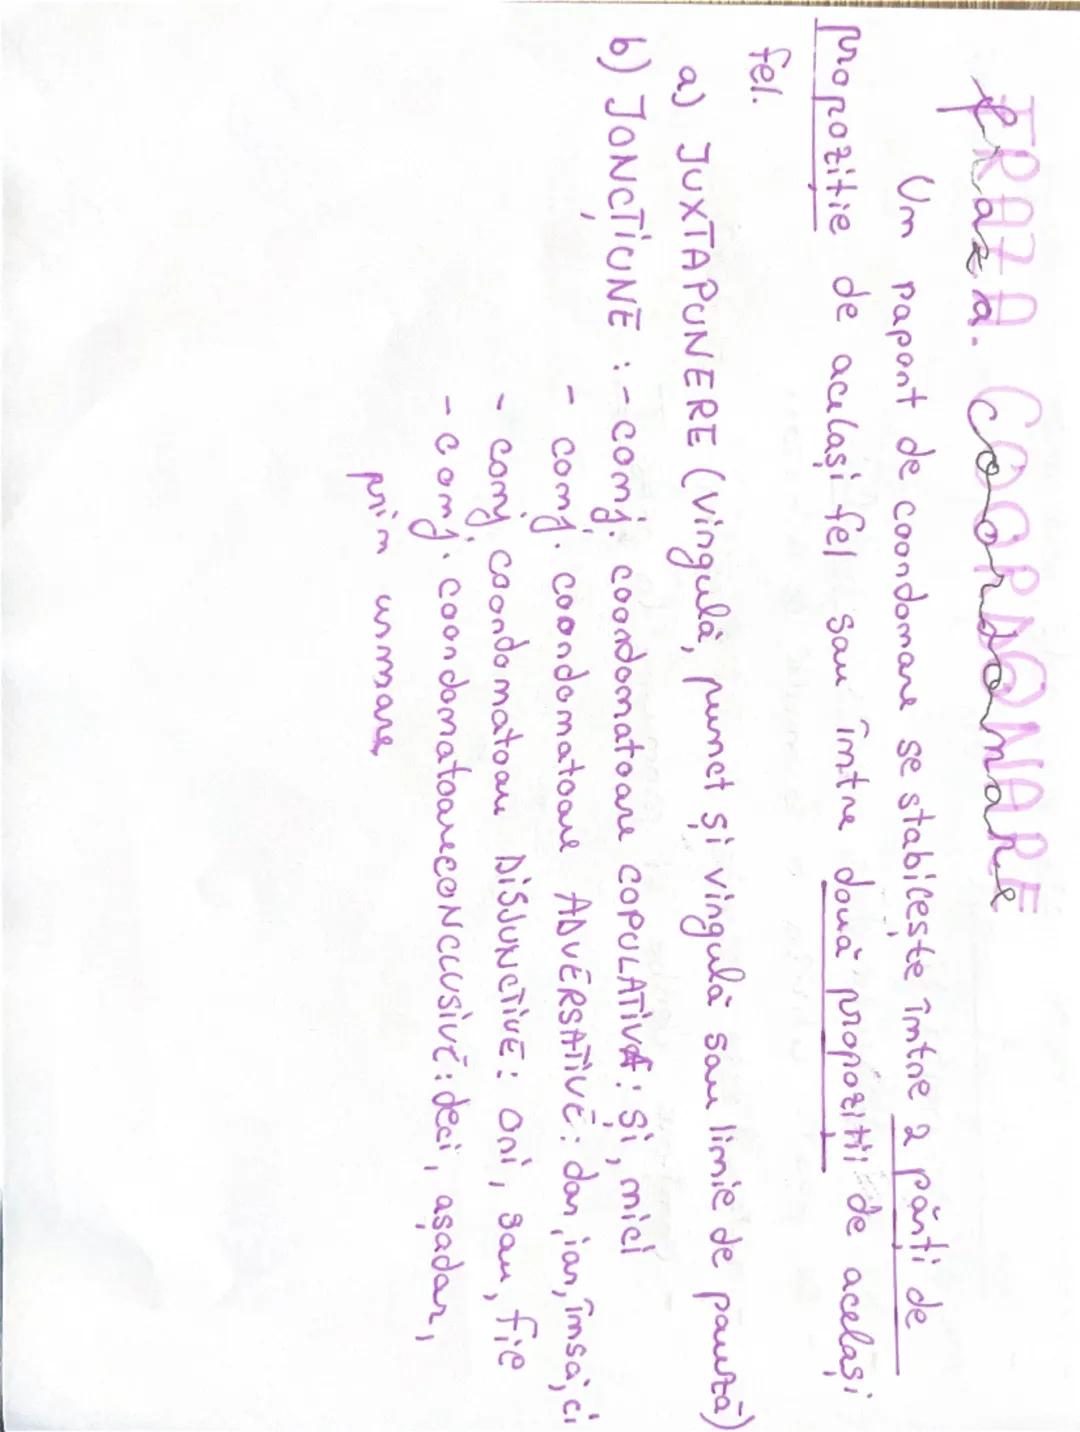 FRAZA. COORDONAREA
fraza. Coordonare
Un raport de coordonare se stabilește între 2 părți de
propoziție de același fel sau între două propoziții de același
fel.
a) JUXTAPUNERE (virgulă, punct și virgulă sau linie de pauză)
b) JONCȚIUNE : - conj. coordonatoare COPULATIVE: și, nici
- conj. coordonatoare ADVERSATIVE: dar, iar, însă, ci
- conj. coordonatoare DISJUNCTIVE: ori, sau, fie
- conj. coordonatoare CONCLUSIVE: deci, așadar,
prin urmare